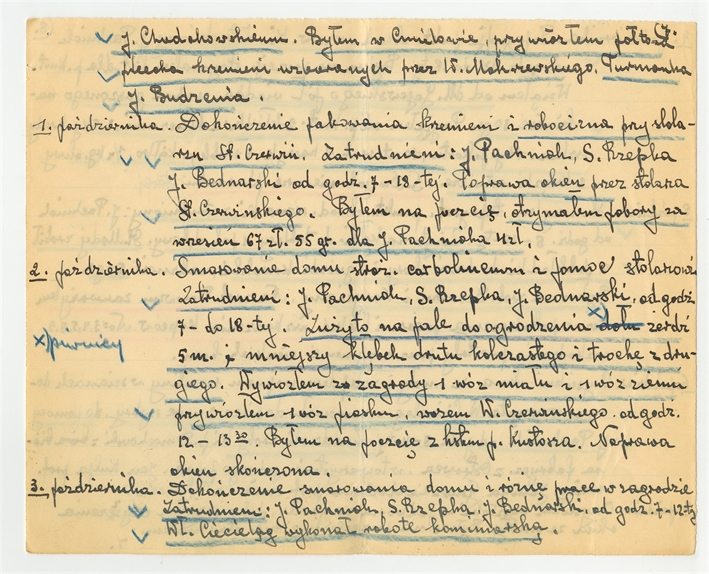 J. Chudchowskiemu. Byłem w Ćmielowie, przywiozłem półtora
plecaka krzemieni wzbieranych przez W. Mokrzewskiego. Furmanka
J. Budzenia.
1. października. Dokończenie pakowania krzemieni i robocizna przy stola-
rzu St. Czerwiń. Zatrudnieni: J. Pachniak, S. Rzepka
J. Bednarski od godz. 7-18-tej. Poprawa okien przez stolarza
St. Czerwińskiego. Byłem na poczcie, otrzymałem pobory za
wrzesień 67 zł. 55 gr. dla J. Pachniaka 4 zł.
2. października. Smarowanie domu stróż. carbolineum i pomoc stolarzowi
Zatrudnieni: J. Pachniak, S. Rzepka, J. Bednarski, od godz.
7- do 18-tej. Zużyto na pale do ogrodzenia dołu x) żerdź
x) piwnicy
5 m. i mniejszy kłębek drutu kolczastego i trochę z dru-
giego. Wywiozłem z zagrody 1 wóz miału i 1 wóz ziemi
przywiozłem 1 wóz piasku, wozem W. Czerwińskiego. od godz.
12 - 13 30 Byłem na poczcie z listem p. Kustosza. Naprawa
okien skończona.
3. października. Dokończenie smarowania domu i różne prace w zagrodzie
Zatrudnieni: J. Pachniak, S. Rzepka, J. Bednarski, od godz. 7-12 tej
Wł. Cieciełąg wykonał robotę kominiarską.